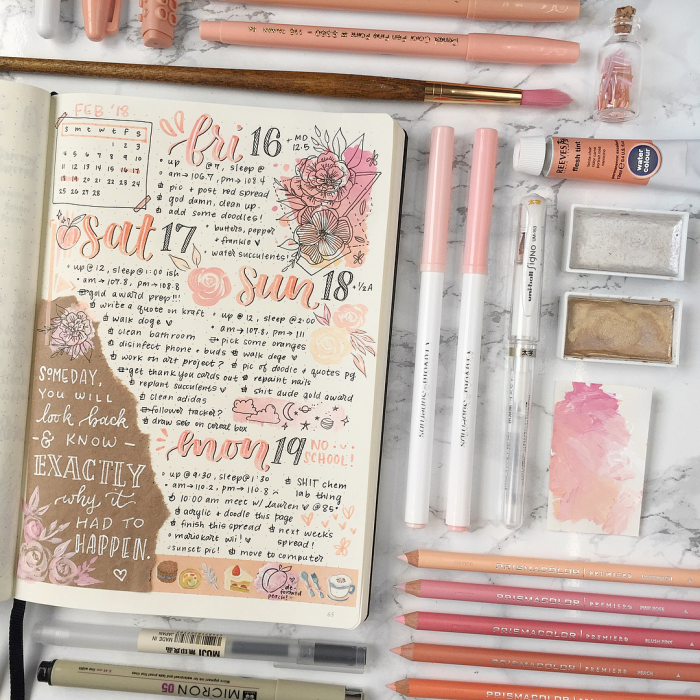 FEB '18
S M T W T F S
1 2 3
4 5 6 7 8 9 10
11 12 13 14 15 16 17
18 19 20 21 22 23 24
25 26 27 28
fri 16 +MD 12.5
up @ 7, sleep @
am → 106.7, pm → 108.4
pic + post red spread
god damn, clean up.
add some doodles!
butters, pepper
+ frankie
water succulents!
sat 17
up @ 12, sleep @ 1:00 ish
am → 107.8, pm → 108.8
gold award prep!!!
write a quote on kraft
walk doge
clean bathroom
disinfect phone + buds
work on art project?
get thank you cards out
replant succulents
clean adidas
follower tracker?
draw seb on cereal box
sun 18 +1/2A
up @ 12, sleep @ 2:00
am → 107.8, pm → 111
pick some oranges
walk doge
pic of doodle + quotes pg.
repaint nails
shit dude gold award
mon 19 NO SCHOOL!
up @ 9:30, sleep @ 1:30
am → 110.2, pm → 110.8
10:00 am meet w/ lauren @ 85°
acrylic + doodle this page
finish this spread
mariokart wii!
sunset pic!
SHIT chem
lab thing
next weeks
spread!
move to computer
de-formed
peach!
SOMEDAY,
YOU WILL
look back
- & KNOW -
EXACTLY
why it
HAD TO
HAPPEN.
65
REEVES
flesh tint
water
colour
uni-ball Signo UM-153
PRISMACOLOR PREMIER
PRISMACOLOR PREMIER
PRISMACOLOR PREMIER BLUSH PINK
PRISMACOLOR PREMIER PEACH
PRISMACOLOR PREMIER
MADE IN JAPAN
MUJI 無印良品
MICRON 05